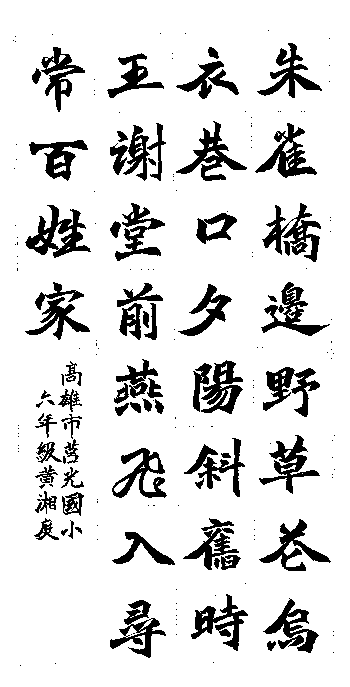 朱雀橋邊野草花烏
衣巷口夕陽斜舊時
王謝堂前燕飛入尋
常百姓家
高雄市莒光國小
六年級黃湘庭